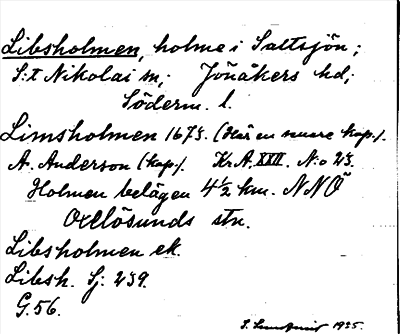 Libsholmen, holme i Saltsjön;
S:t Nikolai sn; Jönåkers hd;
Söderm. l.
Limsholmen 1678. (Här en senare kop.).
A. Anderson (kop.). Kr.A. XXII. No 23.
Holmen belägen 4 1/2 km. NNÖ
Oxelösunds stn.
Libsholmen ek.
Libsh. Sj: 239.
G. 56.
1925.